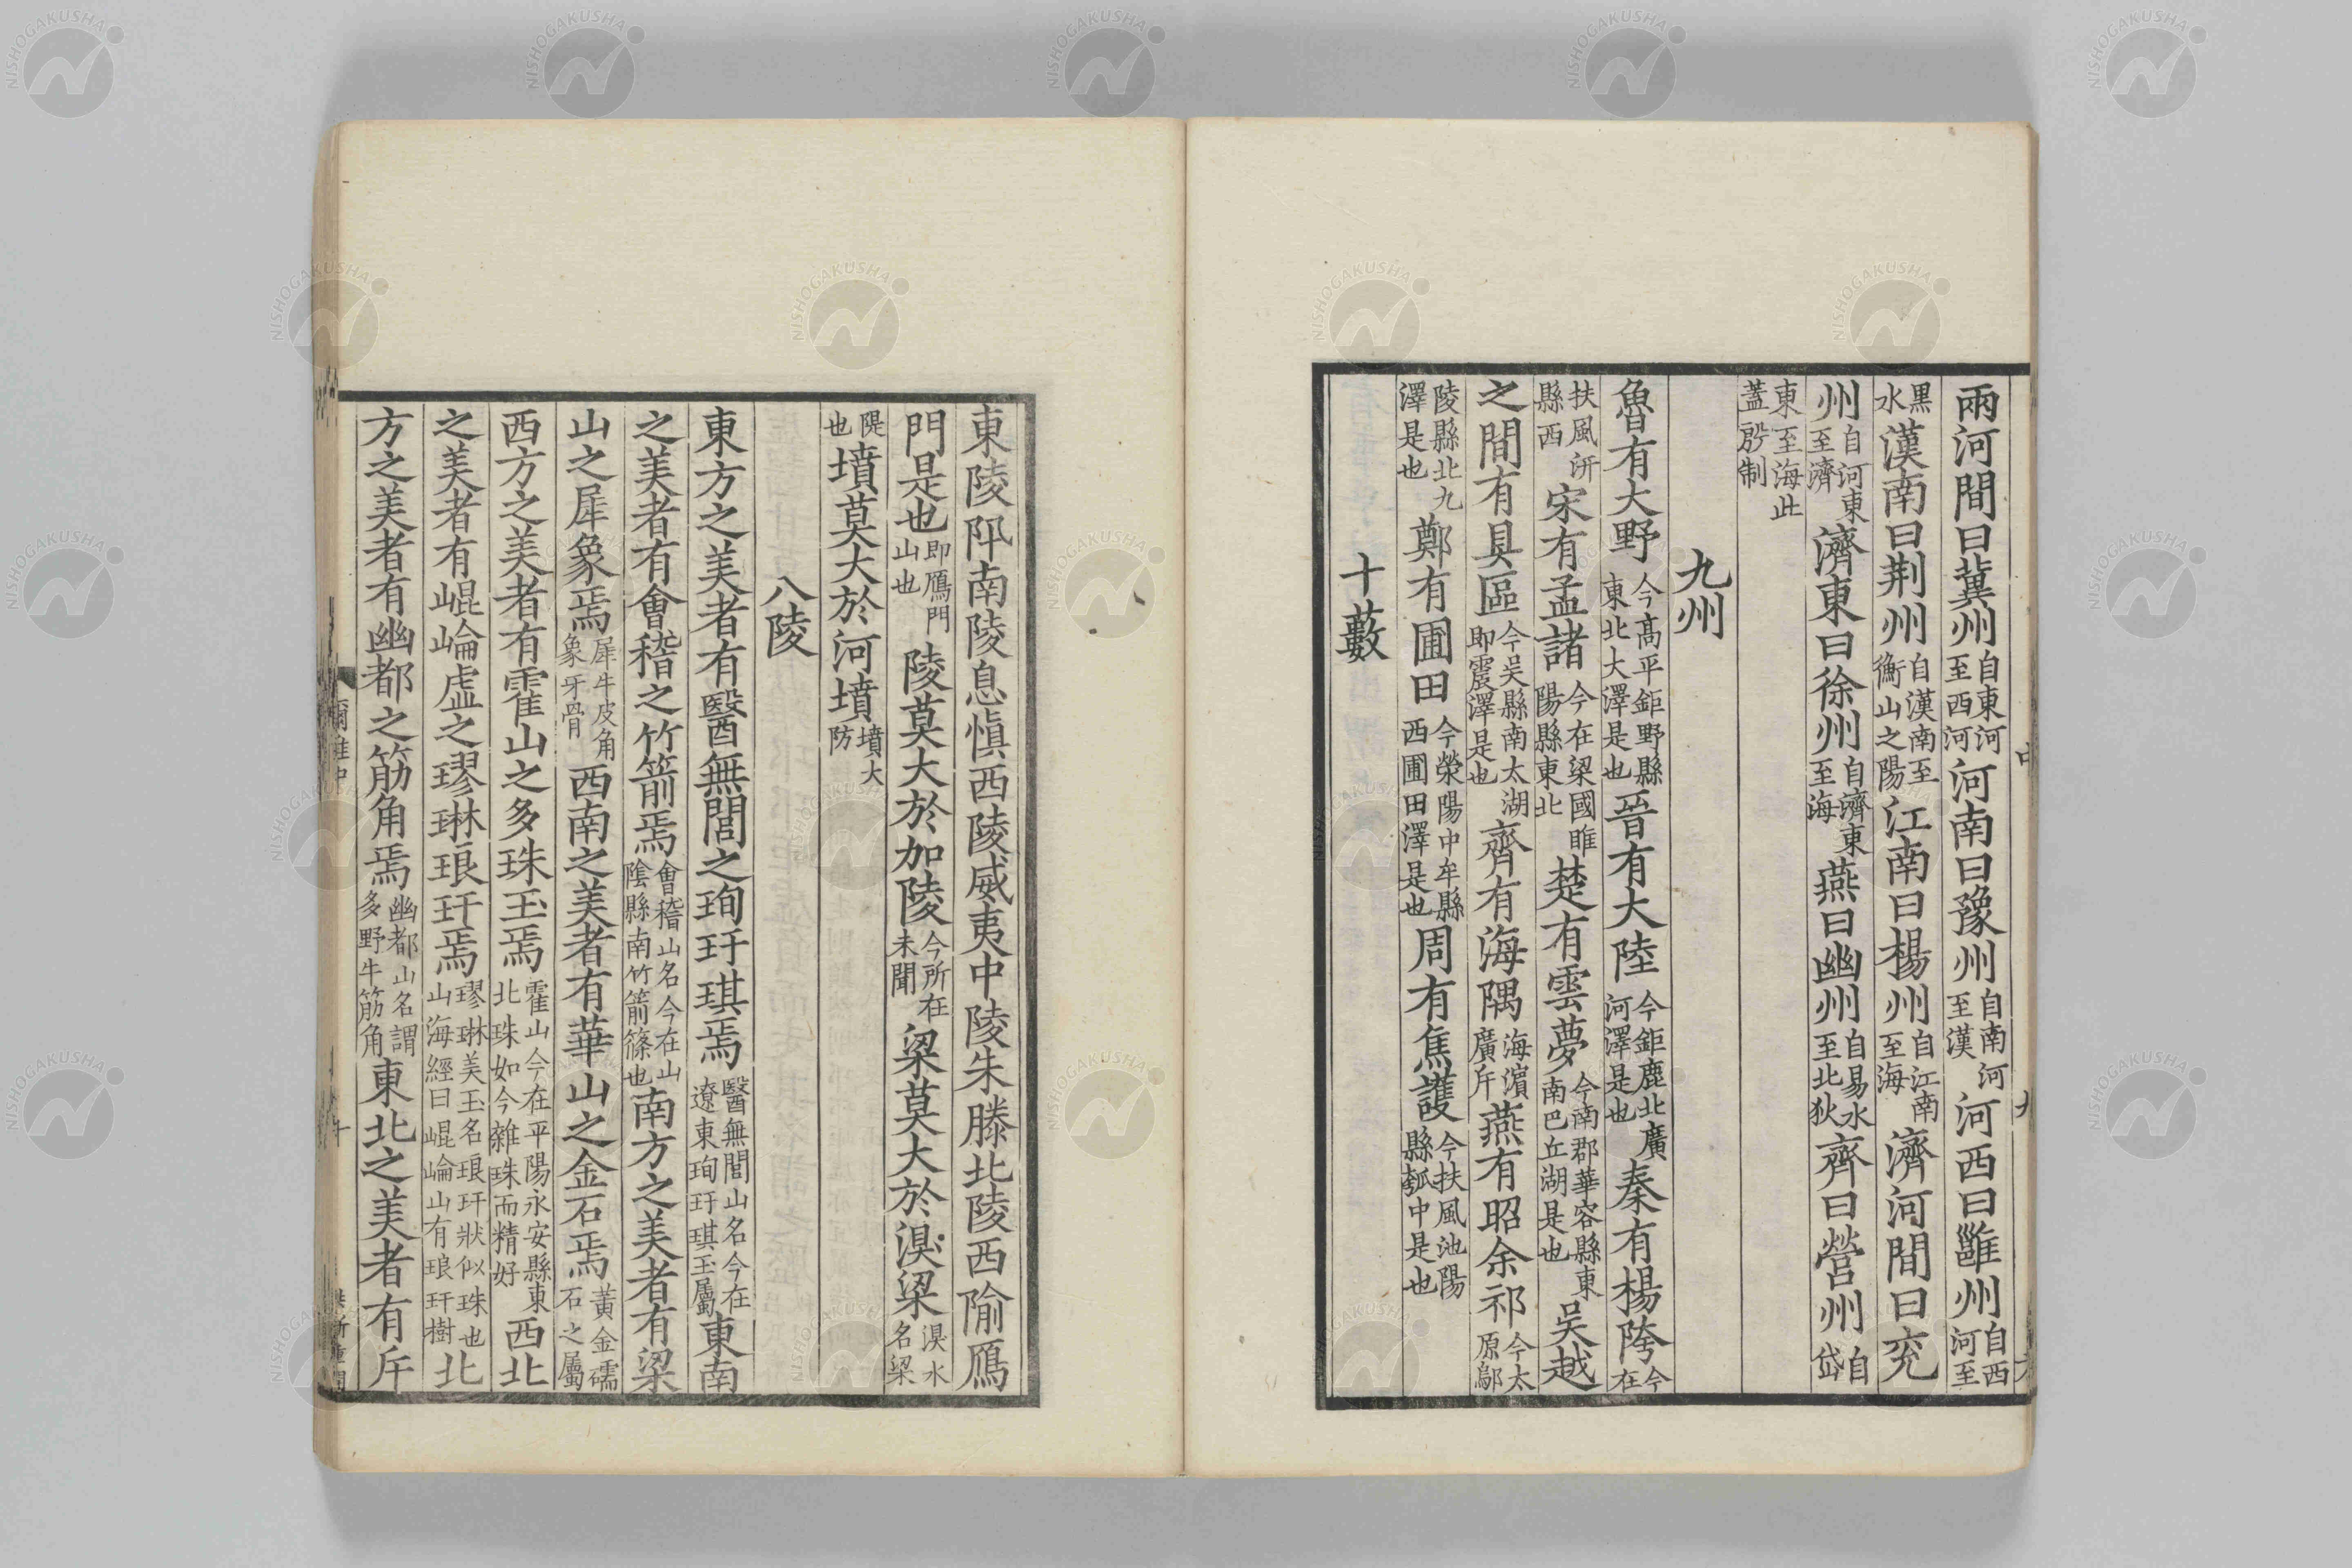 兩河間曰冀州自東河至西河河南曰豫州自南河至漢河西曰雝州自西河至
黑水漢南曰荆州自漢南至衡山之陽江南曰楊州自江南至海濟河間曰兖
州自河東至濟濟東曰徐州自濟東至海燕曰幽州自易水至北狄齊曰營州自岱
東至海此蓋殷制
九州
魯有大野今高平鉅野縣東北大澤是也晉有大陸今鉅鹿北廣河澤是也秦有楊陓今在
扶風汧縣西宋有孟諸今在梁國睢陽縣東北楚有雲夢今南郡華容縣東南巴丘湖是也吳越
之間有具區今吳縣南太湖即震澤是也齊有海隅海濵廣斥燕有昭余祁今太原鄔
陵縣北九澤是也鄭有圃田今滎陽中牟縣西圃田澤是也周有焦護今扶風池陽縣瓠中是也
十藪
東陵阠南陵息愼西陵威夷中陵朱滕北陵西隃鴈
門是也即鴈門山也陵莫大於加陵今所在未聞梁莫大於湨梁湨水名梁
隄也墳莫大於河墳墳大防
八陵
東方之美者有醫無閭之珣玗琪焉醫無閭山名今在遼東珣玗琪玉屬東南
之美者有會稽之竹箭焉會稽山名今在山陰縣南竹箭篠也南方之美者有梁
山之犀象焉犀牛皮角象牙骨西南之美者有華山之金石焉黃金礝石之屬
西方之美者有霍山之多珠玉焉霍山今在平陽永安縣東北珠如今雜珠而精好西北
之美者有崐崘虛之璆琳琅玕焉璆琳美玉名琅玕狀似珠也山海經曰崐崘山有琅玕樹北
方之美者有幽都之筋角焉幽都山名謂多野牛筋角東北之美者有斥
爾雅中
NISHOGAKUSHA